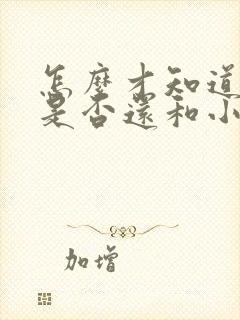 怎麼才知道
是否還和小
加增